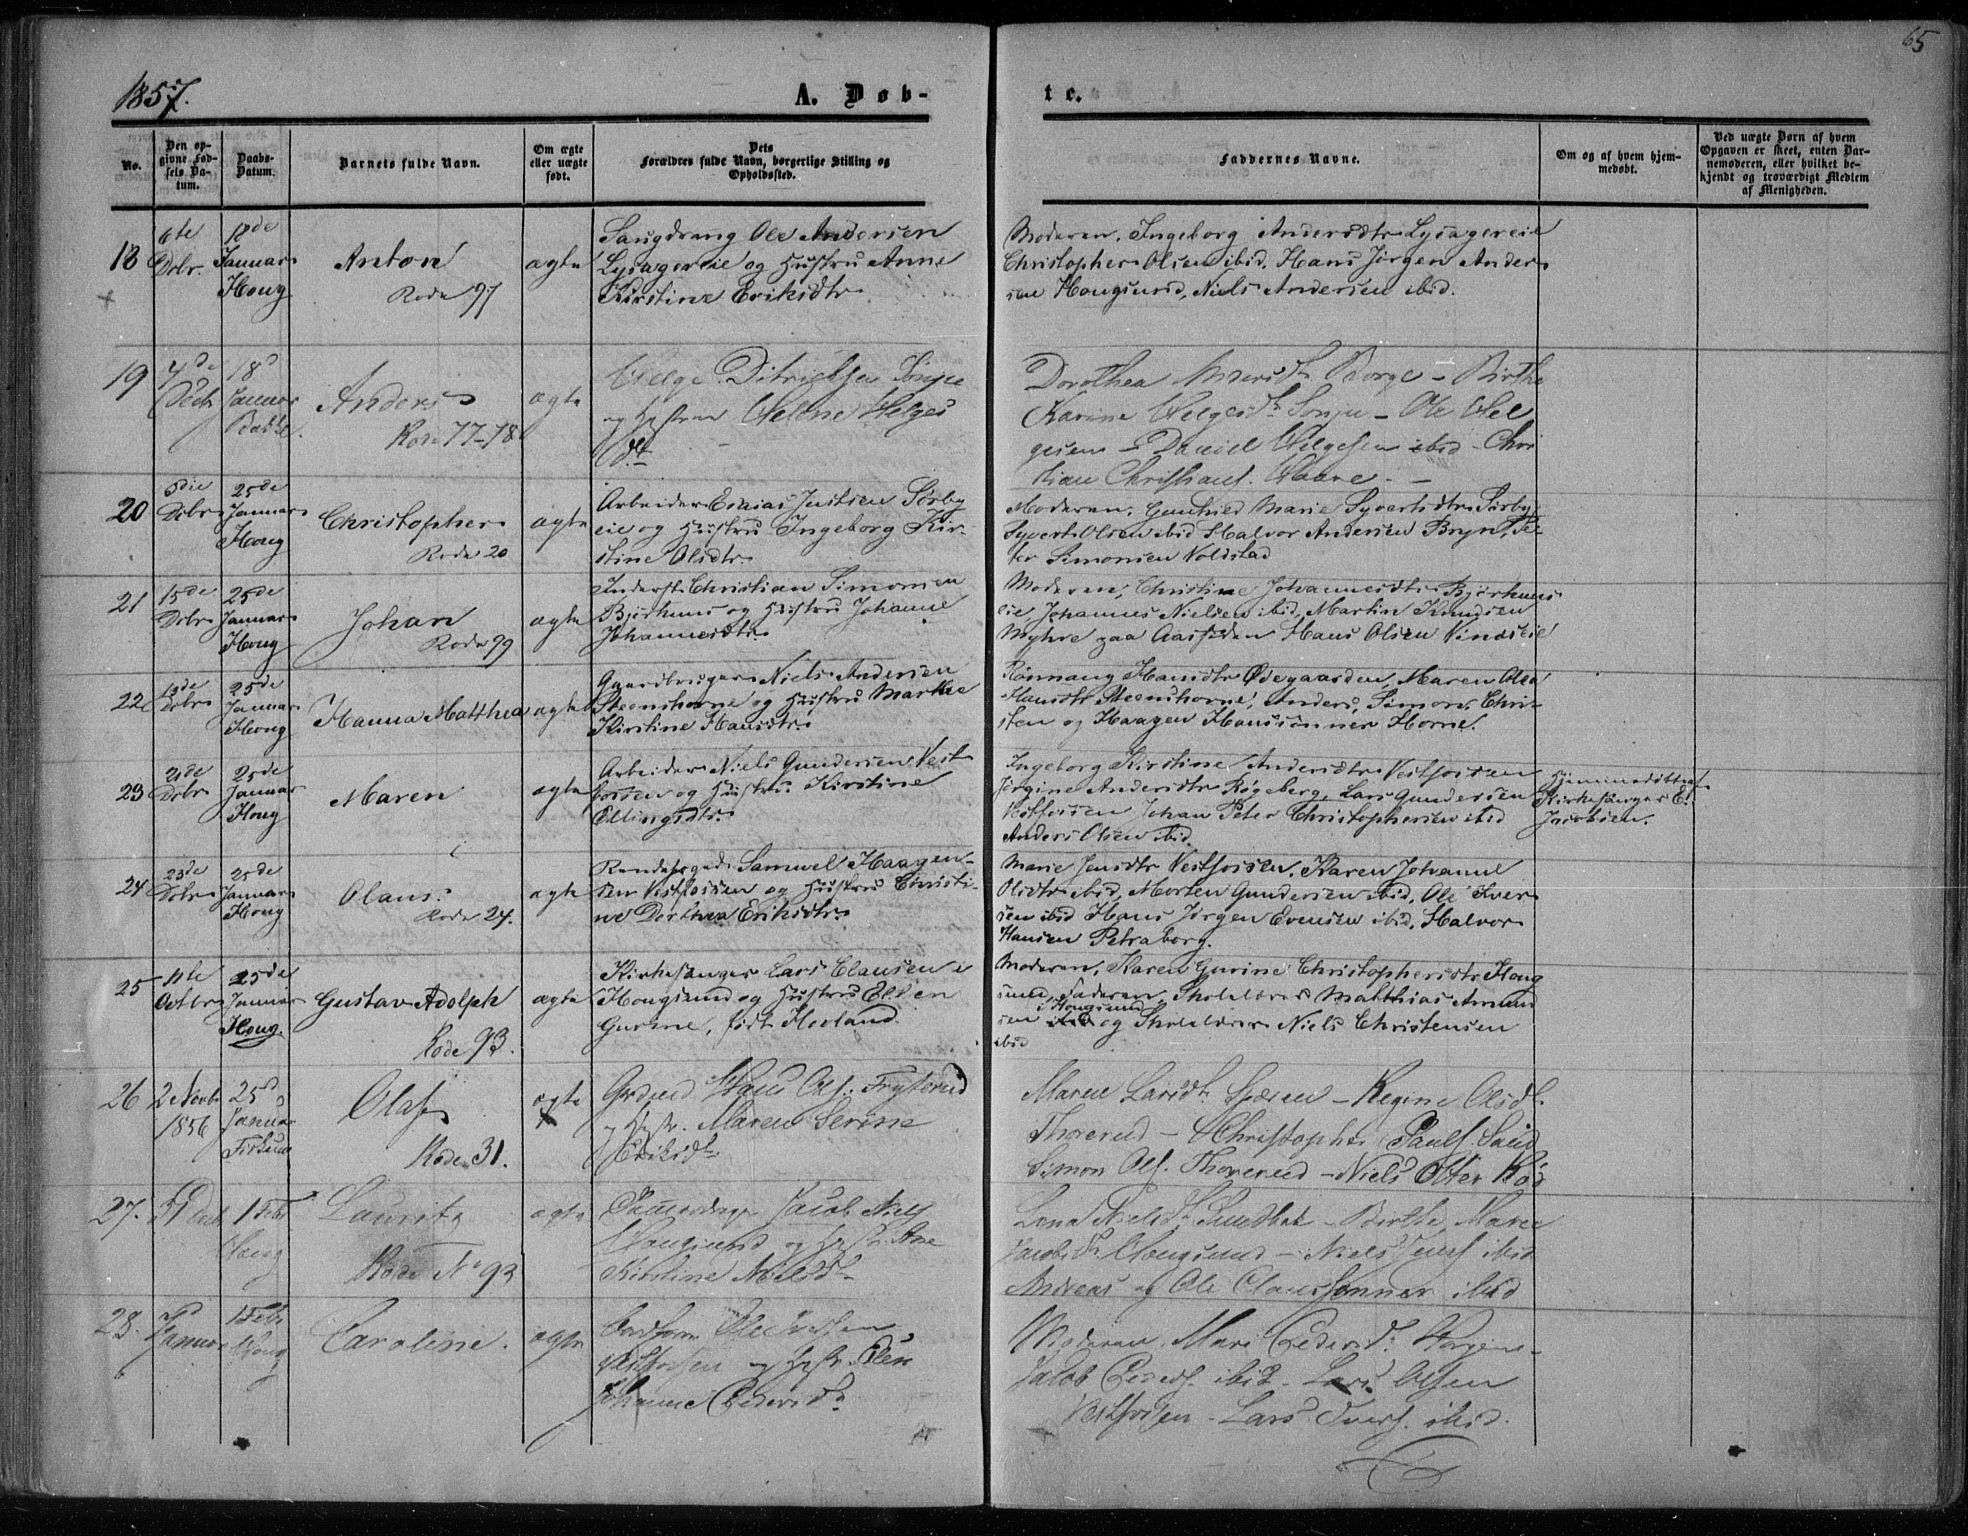 65
1857.
A. Døb-
te.
No.
Den op-
givne Fød-
sels Da-
tum.
Daabs-
Datum.
Barnets fulde Navn.
Om ægte
eller uægte
født.
Dets
Forældres fulde Navn, borgerlige Stilling og
Opholdssted.
Faddernes Navne.
Om og af hvem hjem-
medøbt.
Ved uægte Børn af hvem
Opgaven er skeet, enten Bar-
nemoderen, eller hvilket be-
kjendt og troværdigt Medlem
af Menigheden.
18
6te
Dcbr.
18de
Januar
Houg
Anton
Rode 97
ægte
Ole Andersen
Lysagereie og Hustru Anne
Kirstine Eriksdtr.
Moderen, Ingeborg Andersdtr Lysagereie
Christopher Olsen ibid, Hans Jørgen Ander-
sen Hougsund, Niels Andersen ibid.
19
4de
Decb
18d
Januar
Bakke.
Anders
Rode 77-78
ægte
Helge Ditrichsen
og Hustru Helene Helges
Dt.
Dorothea Borge - Birthe
Karine Helgesdt - Ole Hel
gesen - Daniel Helgesen ibid - Chri
stian Christians.
20
Dcbr
25de
Januar
Houg
Christopher
Rode 20
ægte
Arbeider Esaias Justsen Sørby
eie og Hustru Ingeborg Kir-
stine Olsdtr
Moderen, Gunhild Marie Syvertsdtr Sørby,
Syvert Olsen ibid Halvor Andersen Bryn, Pe-
ter Simonsen Voldstad
21
15de
Dcbr
25de
Januar
Houg
Johan
Rode 99
ægte
Inderst Christian Simonsen
Bjørhuus og Hustru Johanne
Johannesdtr
Moderen, Christine Johannesdtr Bjørhuus
eie, Johannes Nielsen ibid, Martin Knudsen
Myhre paa Aassiden Hans Olsen Vinæseie
22
13de
Dcbr
25de
Januar
Houg
Hanna Matthea
ægte
Gaardbruger Niels Andersen
Steenshorne og Hustru Marthe
Kirstine Hansdtr
Rønnaug Hansdtr Ødegaarden, Maren Olea
Hansdtr Steenshorne, Anders, Simon, Chri-
sten og Haagen Hanssønner Horne.
23
21de
Dcbr
25de
Januar
Houg
Maren
ægte
Arbeider Niels Gundersen Vest
fossen og Hustru Kirstine
Ellingsdtr.
Ingeborg Kirstine Andersdtr Vestfossen
Jørgine Andersdtr Røgeberg, Lars Gundersen
Vestfossen Johan Peter Christophersen ibid
Anders Olsen ibid.
Hjemmedøbt af
Kirkesanger E.
Jacobsen.
24
23de
Dcbr
25de
Januar
Houg
Olaus
Rode 24.
ægte
Samuel Haagen-
sen Vestfossen og Hustru Christi-
ne Dorthea Eriksdtr
Marie Jensdtr Vestfossen, Karen Johanne
Olsdtr ibid, Morten Gundersen ibid, Ole Iver
sen ibid Hans Jørgen Evensen ibid, Halvor
Hansen Petraborg.
25
11te
Octbr
25de
Januar
Houg
Gustav Adolph
Rode 93.
ægte
Kirkesanger Lars Clausen i
Hougsund og Hustru Ellen
Gurine, født Hovland
Moderen, Karen Gurine Christophersdtr Houg
sund, Faderen, Skolelærer Matthias Amund
sen i Hougsund og Skolelærer Niels Christensen
ibid
26
2 Novbr
1856
25d
Januar
Fiskum
Olaf
Rode 31.
ægte
Hans Ols.
og Hustr. Maren Serine
Eriksdt
Maren Larsdt - Regine Olsdt.
Thorerud - Christopher Pauls.
Simon Ols. Thorerud - Niels
27.
1 Febr
Houg
Lauritz
Rode No 93
ægte
Jacob Niels
Hougsund og Hustr. Ane
Kirstine Nielsdt
Lena Nielsdt - Birthe Marie
Jacobsdt Hougsund - Niels ibid
Andreas og Ole Claussønner ibid
28.
Januar
1 Febr
Houg
Caroline.
ægte
Vestfossen og Hustr. Elen
Johanne Pedersdt
Moderen Mari Pedersdt.
Jacob Peders. ibid - Lars Olsen
Vestfossen - Lars Ivers. ibid.